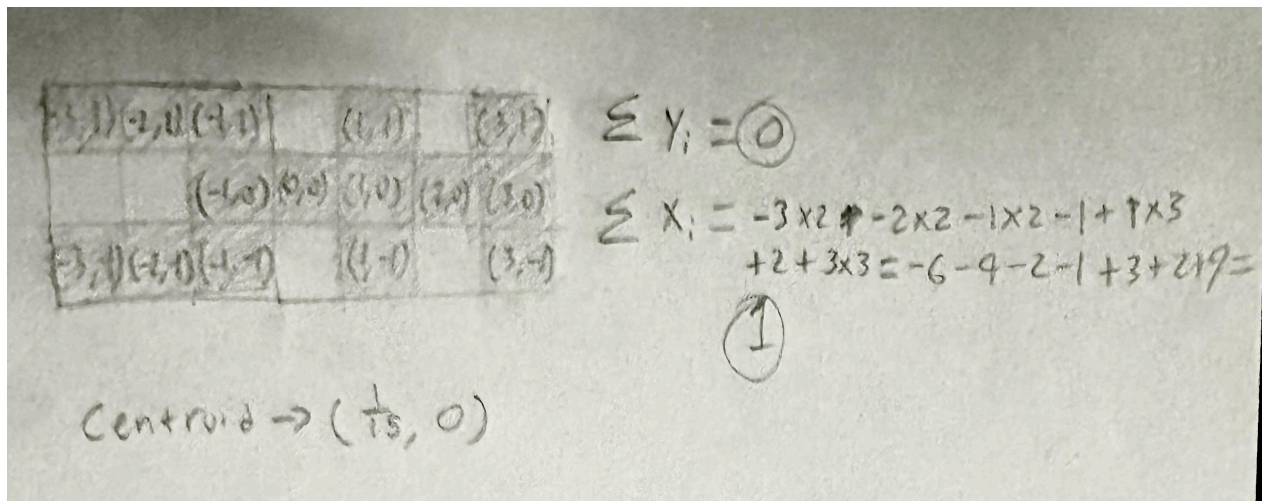 (-3,1) (-2,1) (-1,1) (1,1) (3,1)
(-1,0) (0,0) (1,0) (2,0) (3,0)
(-3,-1) (-2,-1) (-1,-1) (1,-1) (3,-1)
Σ yᵢ = 0
Σ xᵢ = -3×2 -2×2 -1×2 -1 + 1×3
+2 + 3×3 = -6 -4 -2 -1 +3 +2+9 =
1
Centroid → (1/15, 0)